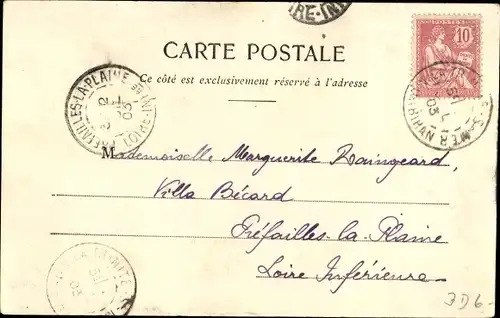 IRE-INF
CARTE POSTALE
Ce côté est exclusivement réservé à l'adresse
POSTES
10
PREFAILLES-LA-PLAINE
LOIRE-INFRE
03
03
MORBIHAN
Mademoiselle Marguerite Raingeard,
Villa Bécard
Préfailles-la-Plaine
Loire Inférieure
LA TRINITE
03
3D6